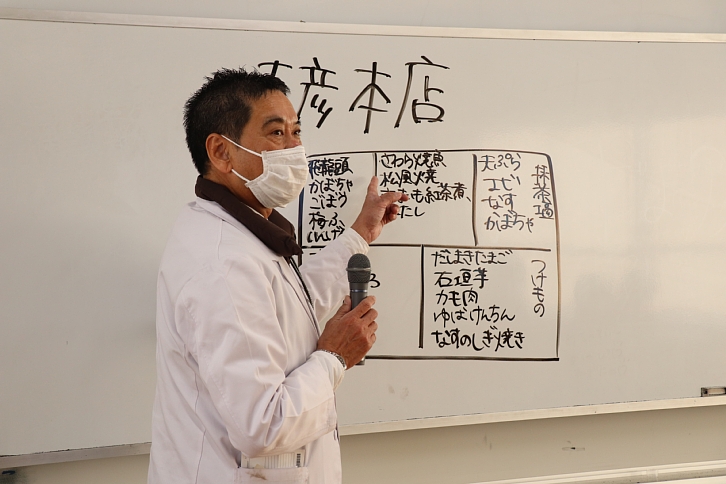 彦本店
飛龍頭
かぼちゃ
ごぼう
梅ふ、
いんげん
さわら焼魚
松風焼
も紅茶煮、
だし
抹茶塩
天ぷら
エビ
なす
かぼちゃ
つけもの
だしまきたまご
石垣芋
カモ肉
ゆばけんちん
なすのしぎ焼き